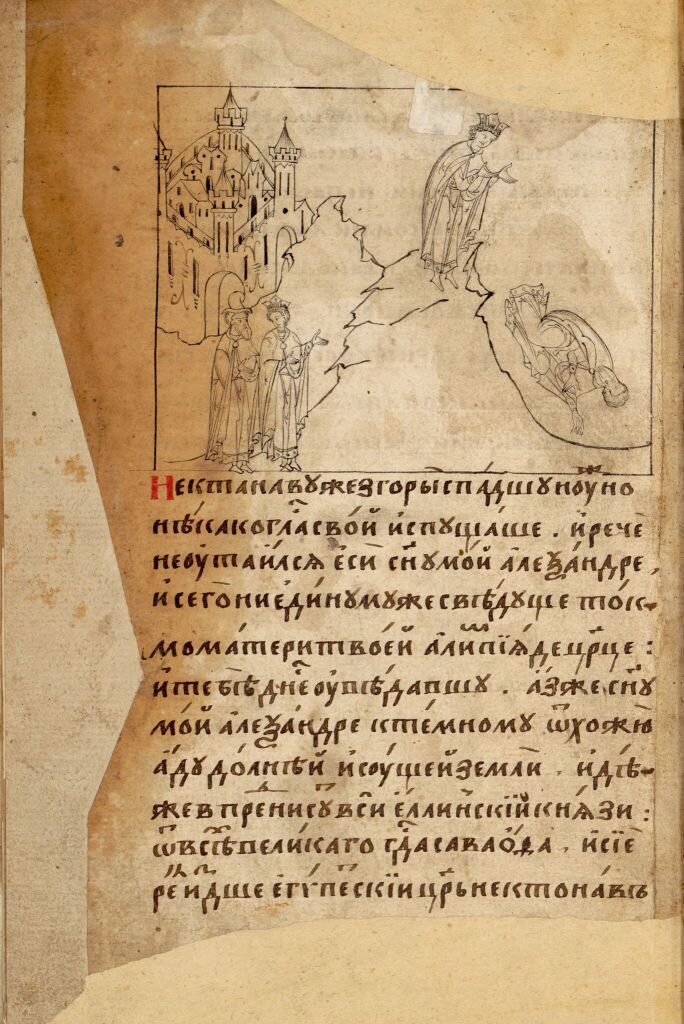 Нектанавꙋжезгорыспа́дшꙋноу҆но
нѣ́какогла҇свои҆ и҆спꙋща́ше . и҆рече҇
неоутаи́лсѧ є҆сѝ сн҃ꙋмо́й а҆леѯа́ндре ,
и҆сегѡ́ниеди́нꙋмꙋ́жесвѣ́дꙋще то́к
мома́теритвоей а҆лимпїѧ́децр҃це :
и҆тебѣ́дн҃еоувѣ́давшꙋ . а҆́зжесн҃ꙋ
мо́й а҆леѯа́ндре кте́мномꙋ ѿхожю̀
а҆́дꙋдо́лнѣй и҆соу́щейземлѝ . и҆дѣ́
жевпренисꙋ́вси є҆́ллинскїйкнѧ́зи :
ѿвсѣ́вели́каго гд҃асаваѻ́да . и҆сїѐ
реи҆́дше є҆гѵ́пескїи цр҃ьнектона́въ